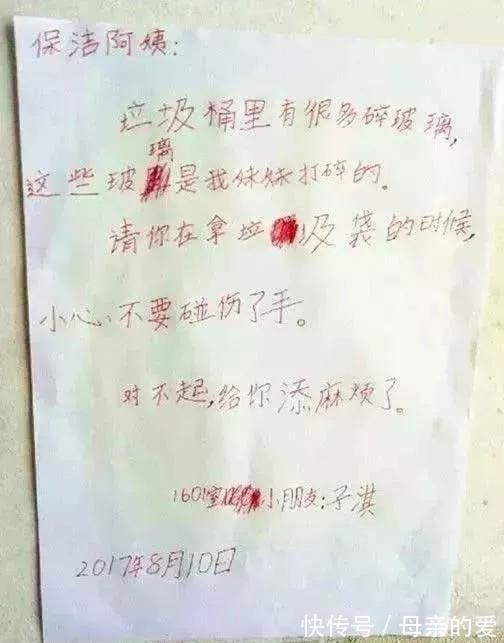 保洁阿姨:
垃圾桶里有很多碎玻璃,
这些玻璃是我妹妹打碎的。
请你在拿垃圾袋的时候,
小心、不要碰伤了手。
对不起,给你添麻烦了。
1601室小朋友:子淇
2017年8月10日
快传号/母亲的爱